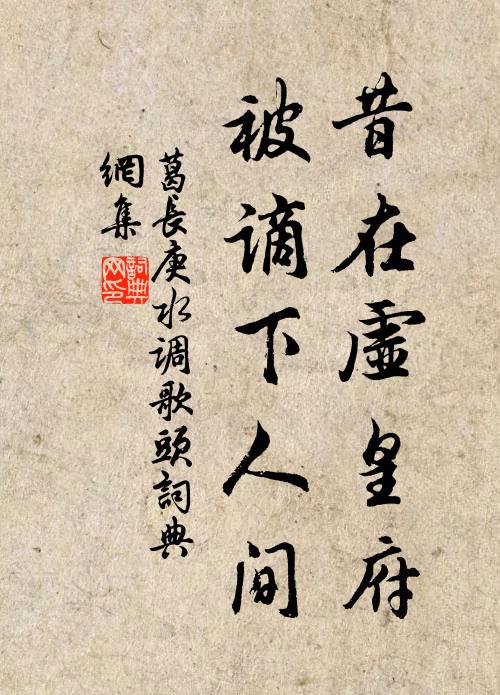 昔在虛皇府
被谪下人间
葛長庚水调歌頭詞典
網集
詞典
网印